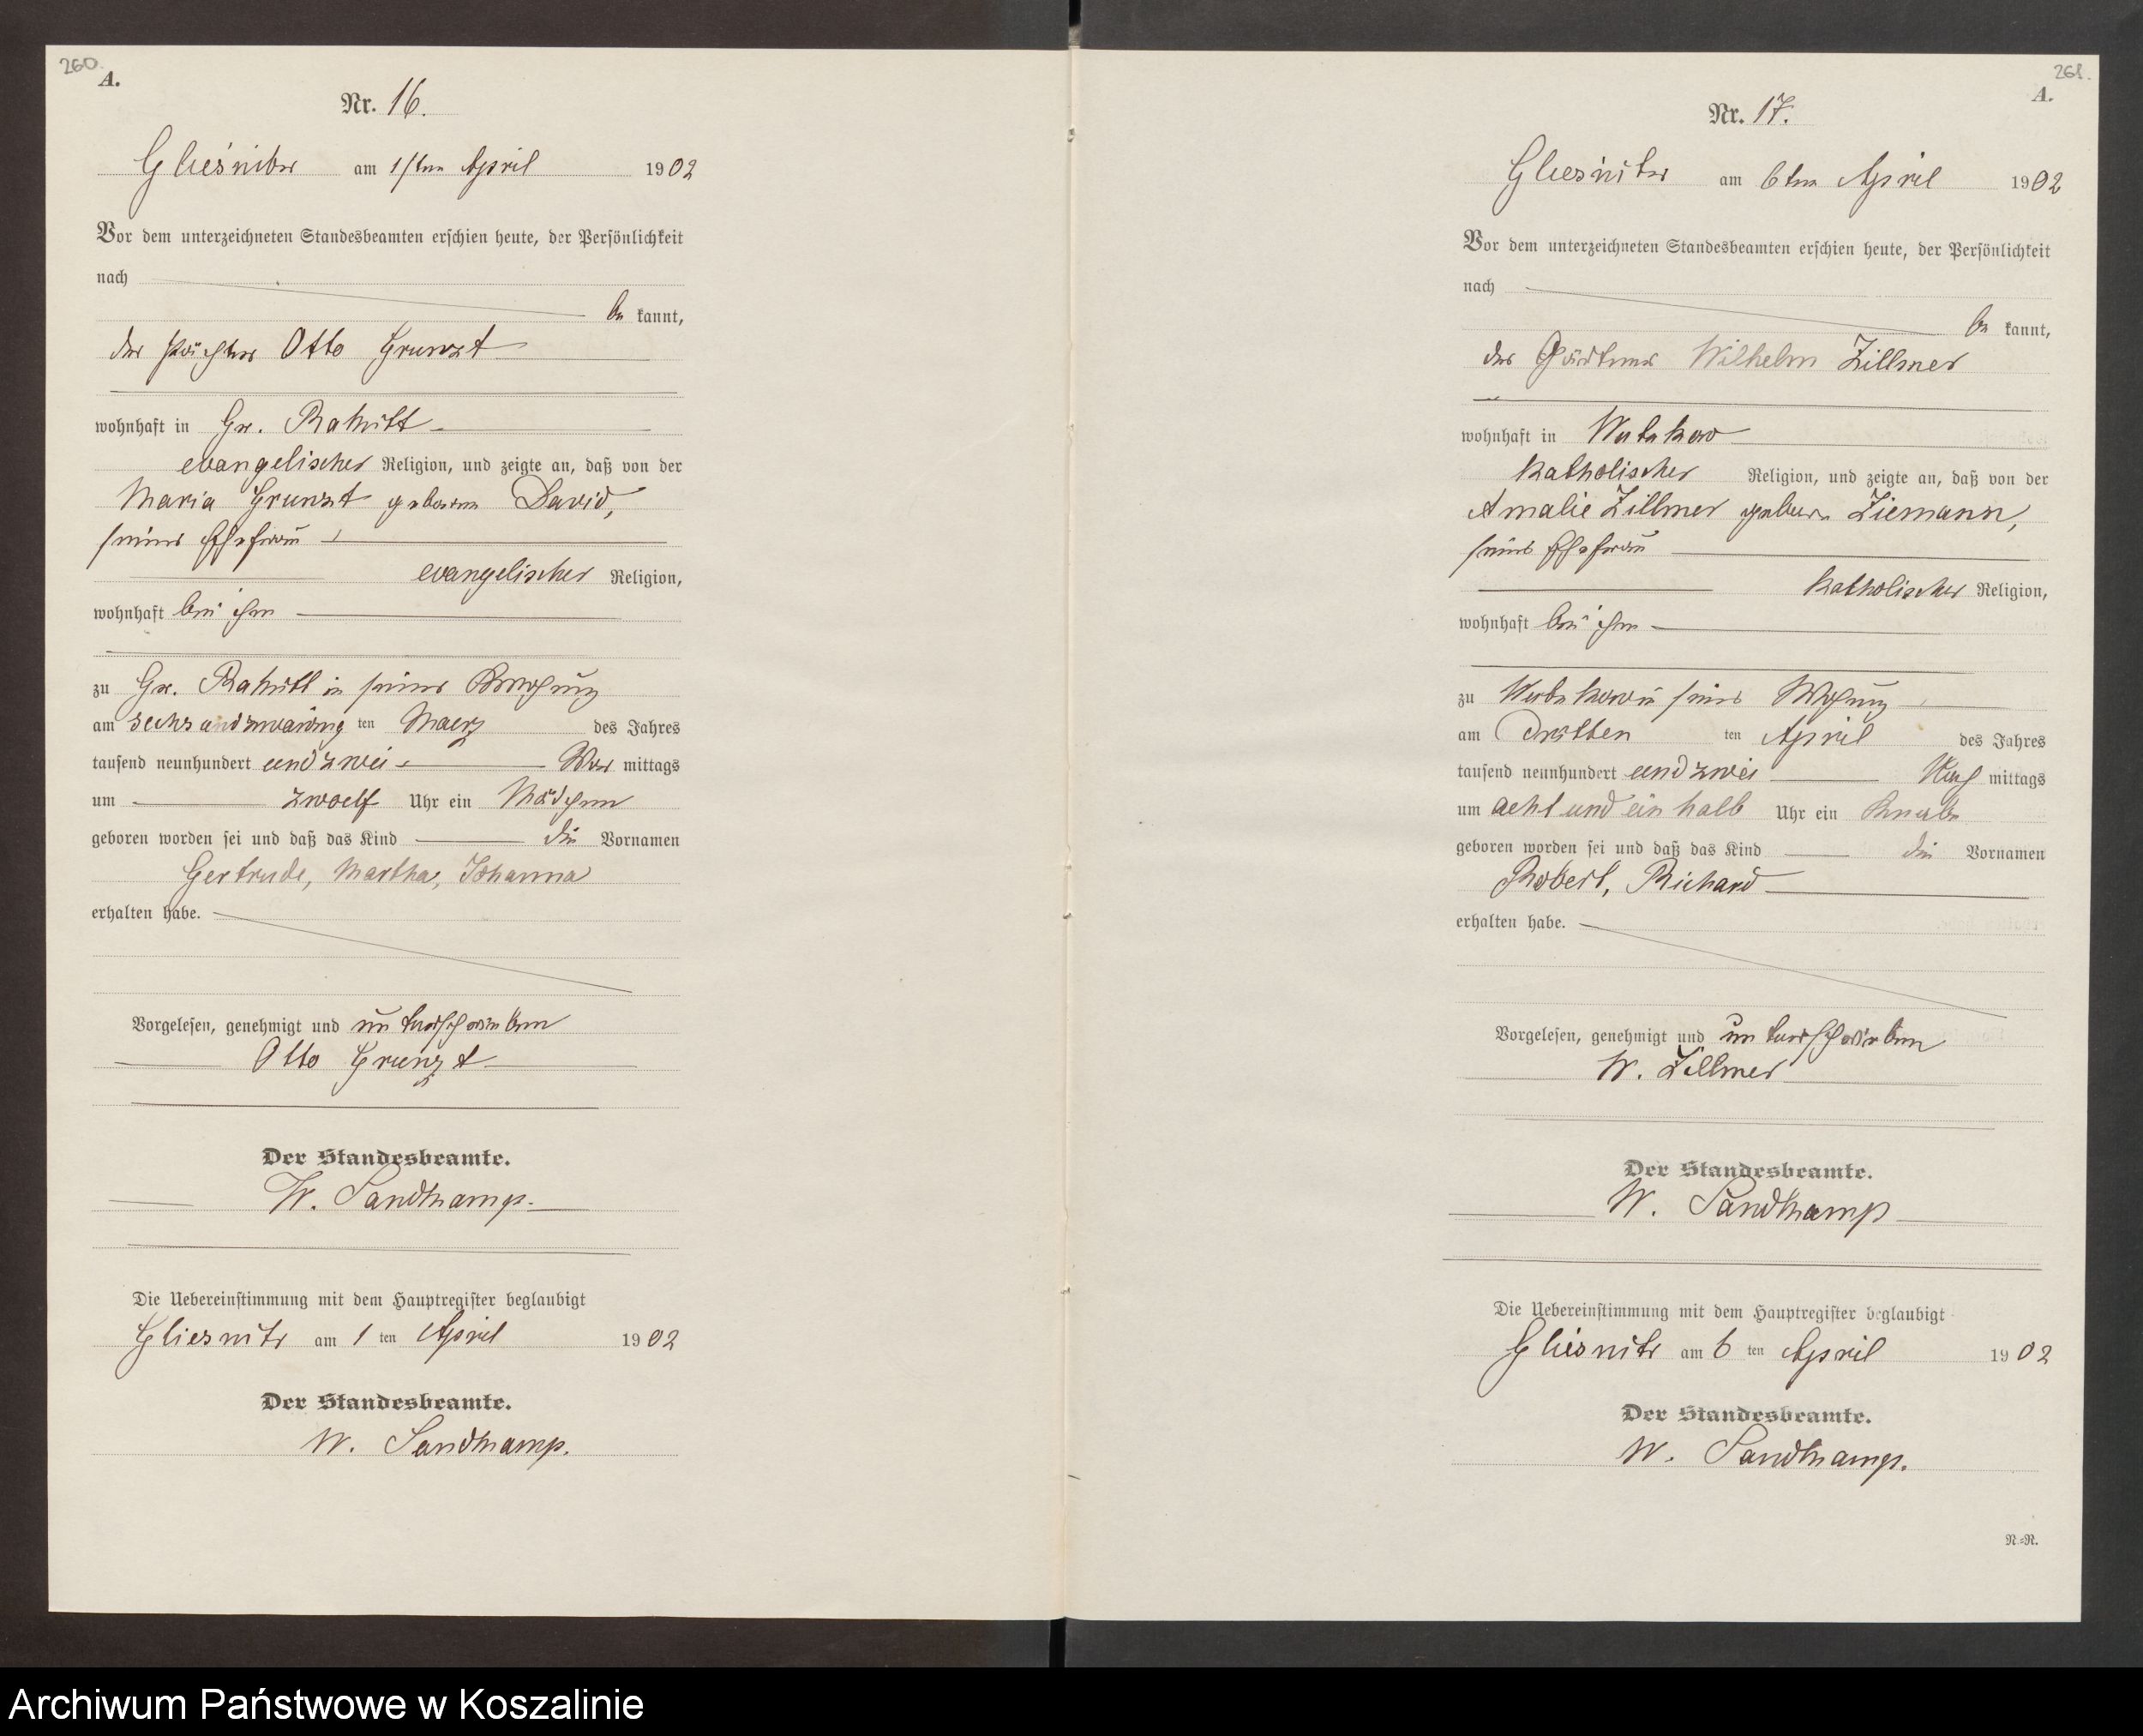 260.
A.
Nr. 16.
Gliesnitz am 1sten April 1902
Vor dem unterzeichneten Standesbeamten erschien heute, der Persönlichkeit
nach
be kannt,
der Pächter Otto Grunzt
wohnhaft in Gr. Rakitt
evangelischer Religion, und zeigte an, daß von der
Maria Grunzt geborene David,
seiner Ehefrau
evangelischer Religion,
wohnhaft bei ihm
zu Gr. Rakitt in seiner
am sechs und zwanzig ten Maerz des Jahres
tausend neunhundert und zwei Vor mittags
um zwoelf Uhr ein Mädchen
geboren worden sei und daß das Kind die Vornamen
Gertrude, Martha, Johanna
erhalten habe.
Vorgelesen, genehmigt und unterschrieben
Otto Grunzt
Der Standesbeamte.
W. Sandkamp.
Die Uebereinstimmung mit dem Hauptregister beglaubigt
Gliesnitz am 1 ten April 1902
Der Standesbeamte.
W. Sandkamp.
261.
A.
Nr. 17.
Gliesnitz am 6ten April 1902
Vor dem unterzeichneten Standesbeamten erschien heute, der Persönlichkeit
nach
be kannt,
der Gärtner Wilhelm Zillmer
wohnhaft in
katholischer Religion, und zeigte an, daß von der
Amalie Zillmer geborne Ziemann,
seiner Ehefrau
katholischer Religion,
wohnhaft bei ihm
zu seiner Wohnung
am dritten ten April des Jahres
tausend neunhundert und zwei Nach mittags
um acht und ein halb Uhr ein Knabe
geboren worden sei und daß das Kind die Vornamen
Robert, Richard
erhalten habe.
Vorgelesen, genehmigt und unterschrieben
W. Zillmer
Der Standesbeamte.
W. Sandkamp
Die Uebereinstimmung mit dem Hauptregister beglaubigt
Gliesnitz am 6 ten April 1902
Der Standesbeamte.
W. Sandkamp.
R.=R.
Archiwum Państwowe w Koszalinie